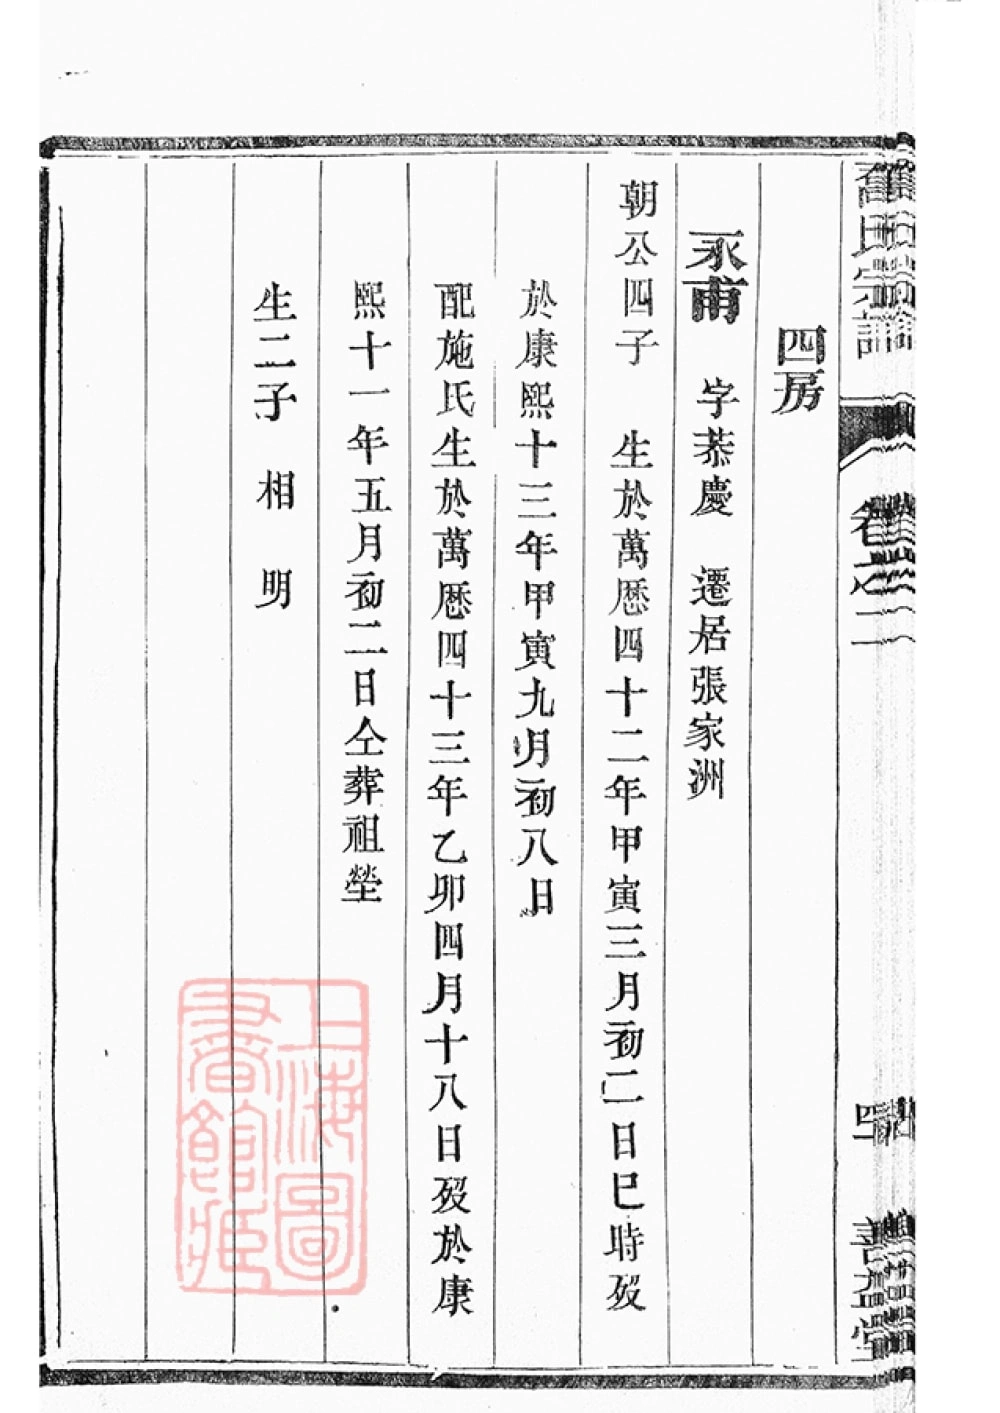 氏宗譜
卷之二
善益堂
四房
永甫　字恭慶　遷居張家洲
朝公四子　生於萬厯四十二年甲寅三月初二日巳時歿
於康熙十三年甲寅九月初八日
配施氏生於萬厯四十三年乙卯四月十八日歿於康
熙十一年五月初二日仝葬祖塋
生二子　相　明
上海圖
書館藏